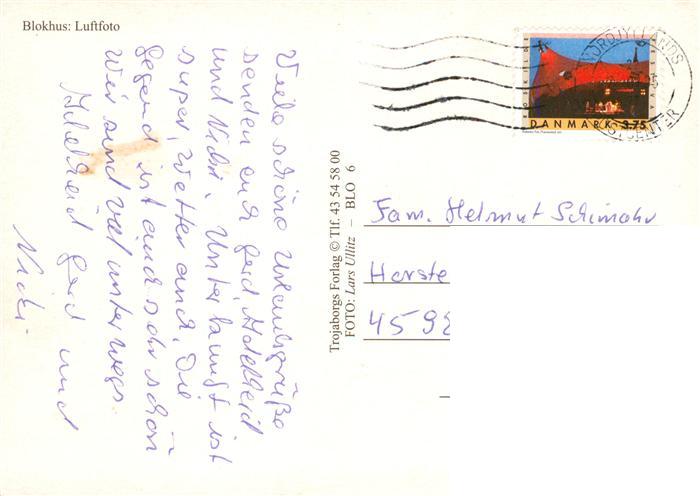 Blokhus: Luftfoto
Viele schöne Urlaubsgrüße
senden euch Gerd, Adelheid
und Nicki. Unterkunft ist
super, Wetter auch. Die
Gegend ist auch sehr schön
Wir sind viel unterwegs.
Adelheid Gerd und
Nicki.
Trojaborgs Forlag © Tlf. 43 54 58 00
FOTO: Lars Ullitz – BLO 6
NORDJYLLANDS
POSTCENTER
ROSKILDE
DANMARK 3.75
Fam. Helmut
Horste
4592